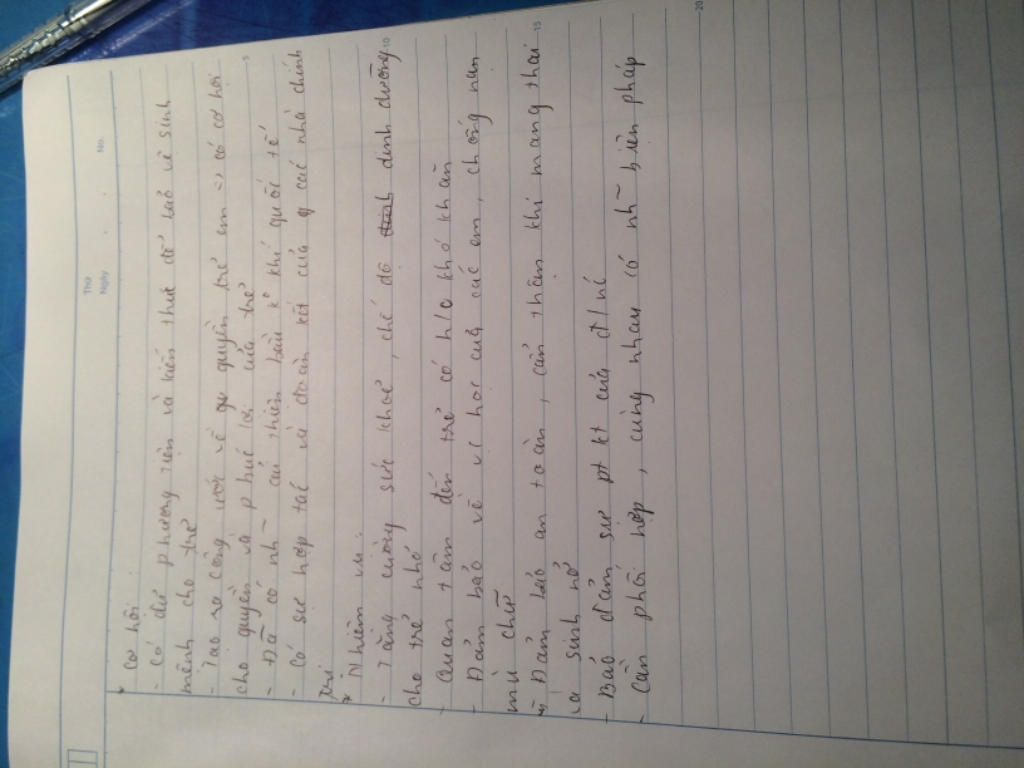 Thứ
Ngày
No.
* Cơ hội
- Có đủ phương tiện và kiến thức để bảo vệ sinh
mệnh cho trẻ
- Tạo ra công ước về quyền trẻ em → có cơ hội
cho quyền và phúc lợi của trẻ
- Đã có nh~ cải thiện bầu k khí quốc tế
- Có sự hợp tác và đoàn kết của các nhà chính
trị
* Nhiệm vụ.
- Tăng cường sức khoẻ, chế độ dinh dưỡng
cho trẻ nhỏ
- Quan tâm đến trẻ có h/c khó khăn
- Đảm bảo về v học của các em, chống nạn
mù chữ
- Đảm bảo an toàn, cẩn thận khi mang thai
và sinh nở
- Bảo đảm sự pt kt của
- Cần phối hợp, cùng nhau có nh~ biện pháp
5
10
15
20